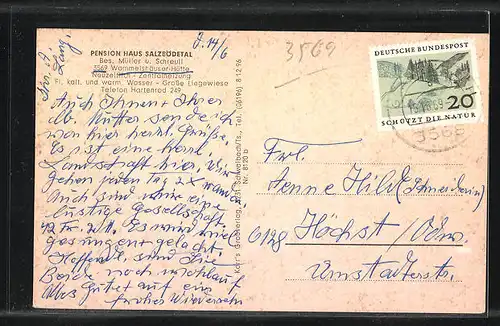 PENSION HAUS SALZBÖDETAL
Bes. Müller u. Schraub
3569 Wommelshäuser-Hütte
Neuzeitlich - Zentralheizung
Fl. kalt. und warm. Wasser - Große Liegewiese
Telefon Hartenrod 249
d. 14/6
Auch Ihnen + Ihrer
lb. Mutter sende ich
von hier herzl. Grüße.
Es ist eine herrl.
Landschaft hier. Wir
gehen jeden Tag 2x wandern.
Auch sind wir eine
lustige Gesellschaft
Es wird viel
gesungen + gelacht.
Hoffentl. sind Sie
Beide noch wohlauf.
Alles Gute + auf ein
frohes Wiedersehn
Tel. (06196) 8 12 96
Nr. 8120 b
3569
DEUTSCHE BUNDESPOST
20
SCHÜTZT DIE NATUR
3568
Frl.
Aenne Hild (Schneiderin)
6128 Höchst / Odw.